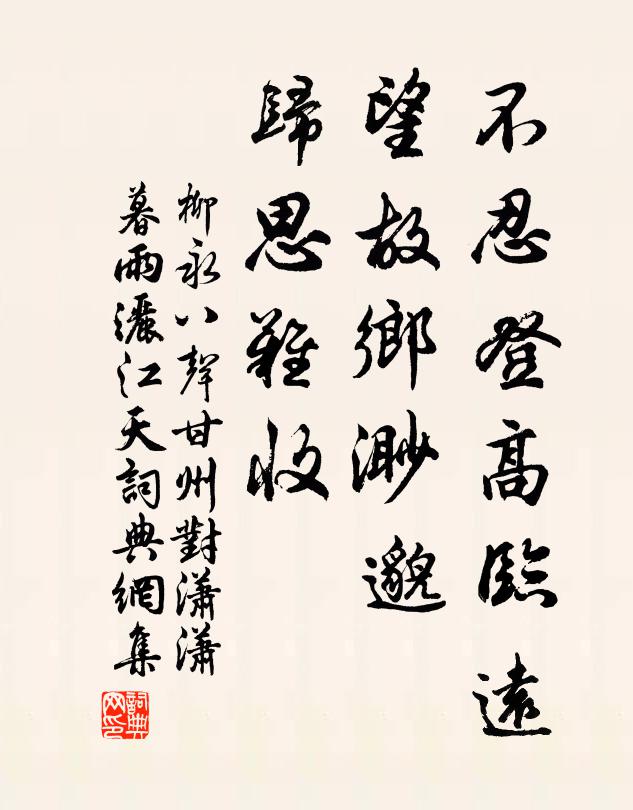 不忍登高臨遠
望故鄉渺邈
歸思難收
柳永八聲甘州對瀟瀟
暮雨灑江天詞典網集
詞典網印